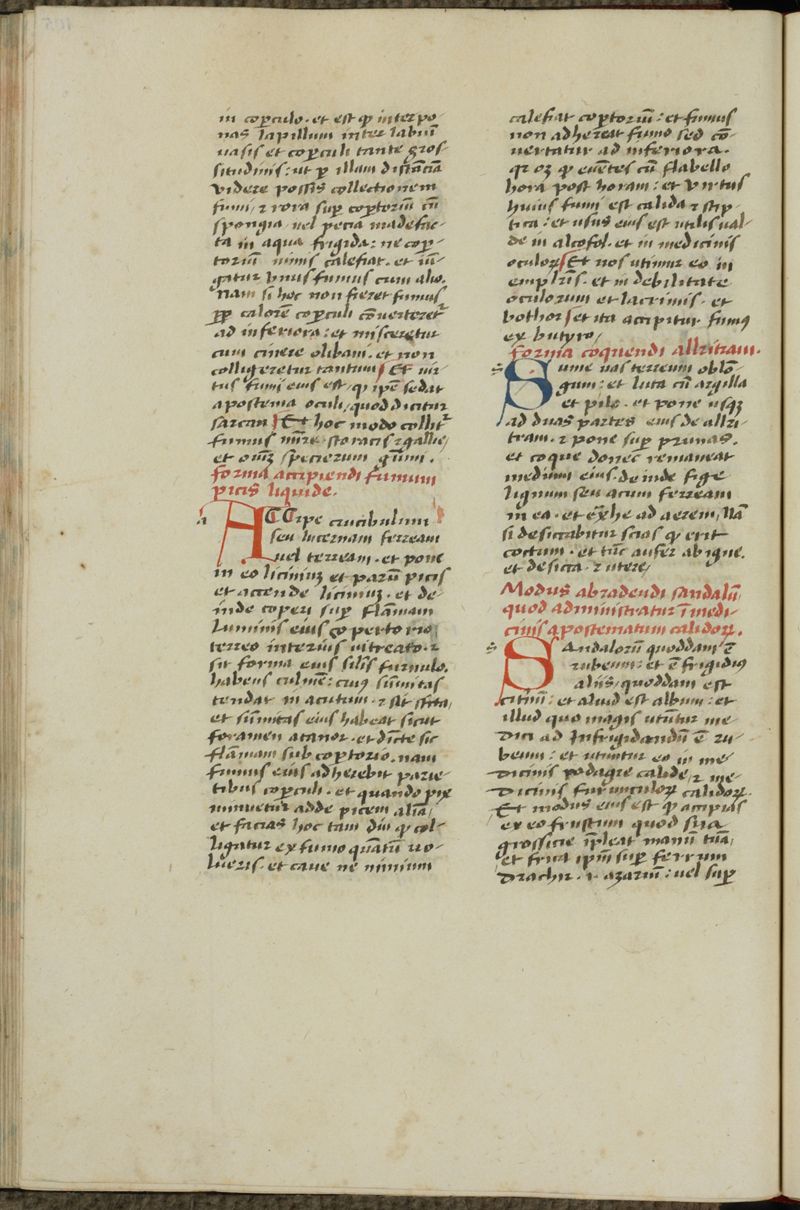 in coꝑculo · et est ꝙ interpo
nas lapillum inter labiū
uasis et coꝑculi tante gros
situdinis : ut ꝑ illam distāciā
videre possis collectionem
fumi / ⁊ rora suꝑ coꝑtoriū cū
spongia / uel pecia madefac-
ta in aqua frigida : ne coꝑ-
torium nimis calefiat · et iū-
gatur vnus fumus cum alio.
Nam si hoc non fieret fumus
ꝓpꝑ calorē coꝑculi cōuerteret᷑
ad inferiora : et misceretur
cum cinere olibani · et non
colligeretur tantum / Et uir-
tus fumi eius est / ꝙ ipē sedat
apostema oculi / quod dicitur
sarcam / Et hoc modo collit᷑
fumus mirre · storacis ⁊ gallie /
et oīuꝫ specierum gūmi ·
forma accipiendi fumum
picis liquide.
a
ACCipe crucibulum
seu lucernam ferream
uel terream · et pone
in eo liciniuꝫ et parū picis
et accende liciniuꝫ · et de-
inde coperi suꝑ flāmam
luminis eius coꝑertorio
terreo interius vitreato · ⁊
sit forma eius silīs furnulo.
habens culmē : cuiꝰ sūmitas
tendat in acutum · ⁊ sit stcta /
et sūmitas eius habeat sicut
foramen atanor · et dīcte sic
flāmam sub coꝑtorio · nam
fumus eius adherebit parie-
tibus coꝑculi · et quando pix
minuetur adde picem aliā /
et facias hoc tam diu ꝙ col-
ligatur ex fumo quātū uo-
lueris · et caue ne nimium
calefiat coꝑtoriū : et fumus
non adhereat fumo sed cō-
uertatur ad inferiora.
qr oꝫ ꝙ euētes cū flabello
hora post horam : et virtus
huius fumi est calida ⁊ stip-
tica : et usus eius est utilis ual-
de in alcofol · et in medicinis
oculoꝝ / Et nos utimur eo in
emplrīs · et in debilitate
oculorum et lacrimis · et
bothor / et ita accipitur fumꝰ
ex butyro /
forma coquendi allritram.
s
Sume uas terreum oblō-
gum : et luta cū argilla
et pilo · et pone usqꝫ
ad duas partes eius de allri-
tram · ⁊ pone suꝑ prunas.
et coque donec remaneat
medium eius · deinde fige
lignum seu acum ferream
in ea · et exēhe ad aerem / Nā
si desiccabitur scias ꝙ erit
coctum · et tūc aufer ab igne.
et desicca · ⁊ utere /
Modus abradendi sandalū /
quod administratur ī medi-
cinis apostematum calidoꝝ.
s
Sandaloꝝ quoddam ē
rubeum : et ē frigidius
aliis / quoddam est
citrinū : et aliud est album : et
illud quo magis utūtur me
dici ad Infrigidandū ē ru-
beum : et utuntur eo in me-
dicinis podagre calide / ⁊ me-
dicinis furunculoꝝ calidoꝝ.
Et modus eius est ꝙ accipias
ex eo frustum quod sua
grossicie īpleat manū tuā /
et frica ipm̄ suꝑ ferrum
azariū : uel suꝑ